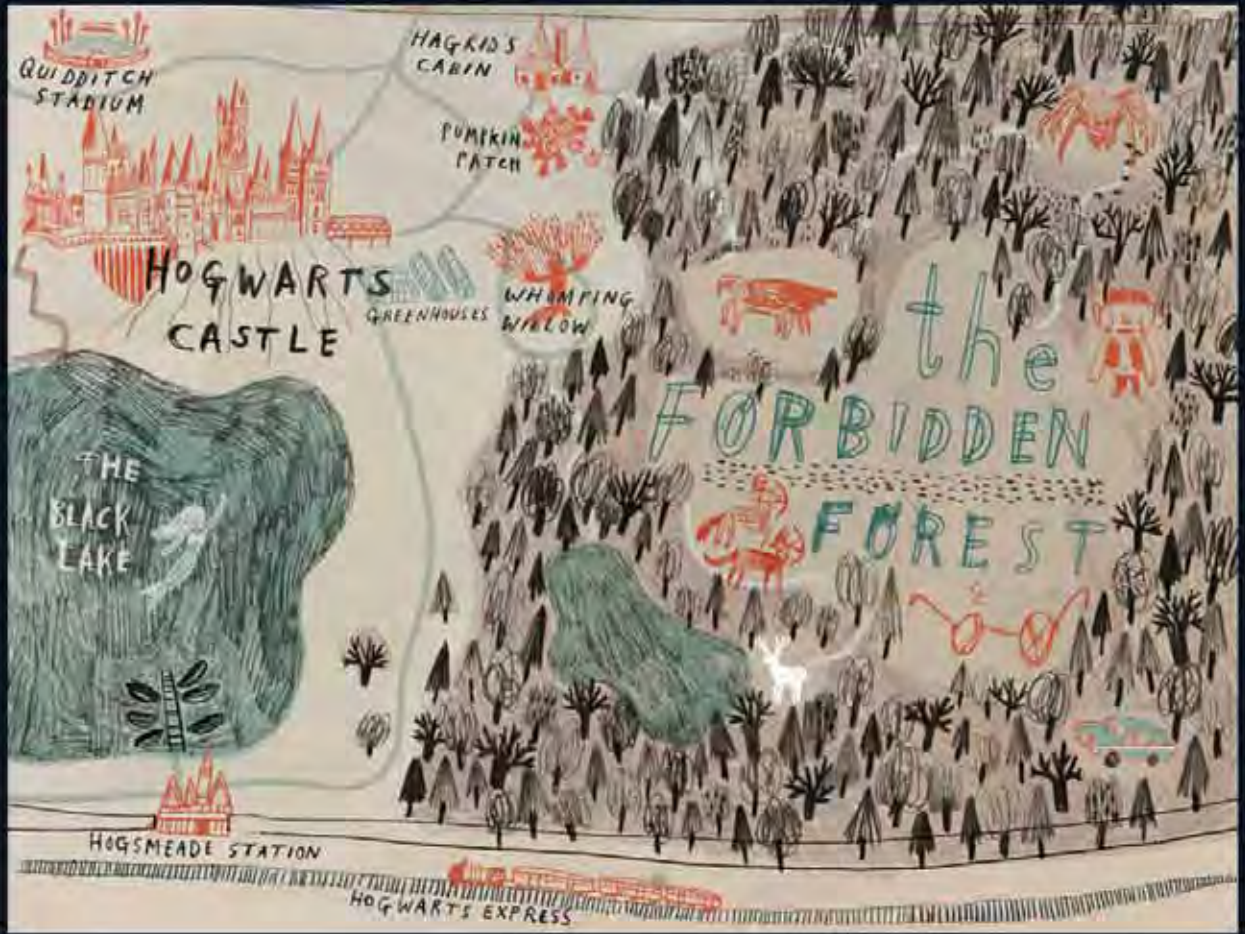 QUIDDITCH
STADIUM
HAGRID'S
CABIN
PUMPKIN
PATCH
HOGWARTS
CASTLE
GREENHOUSES
WHOMPING
WILLOW
the
FORBIDDEN
FOREST
THE
BLACK
LAKE
HOGSMEADE STATION
HOGWARTS EXPRESS